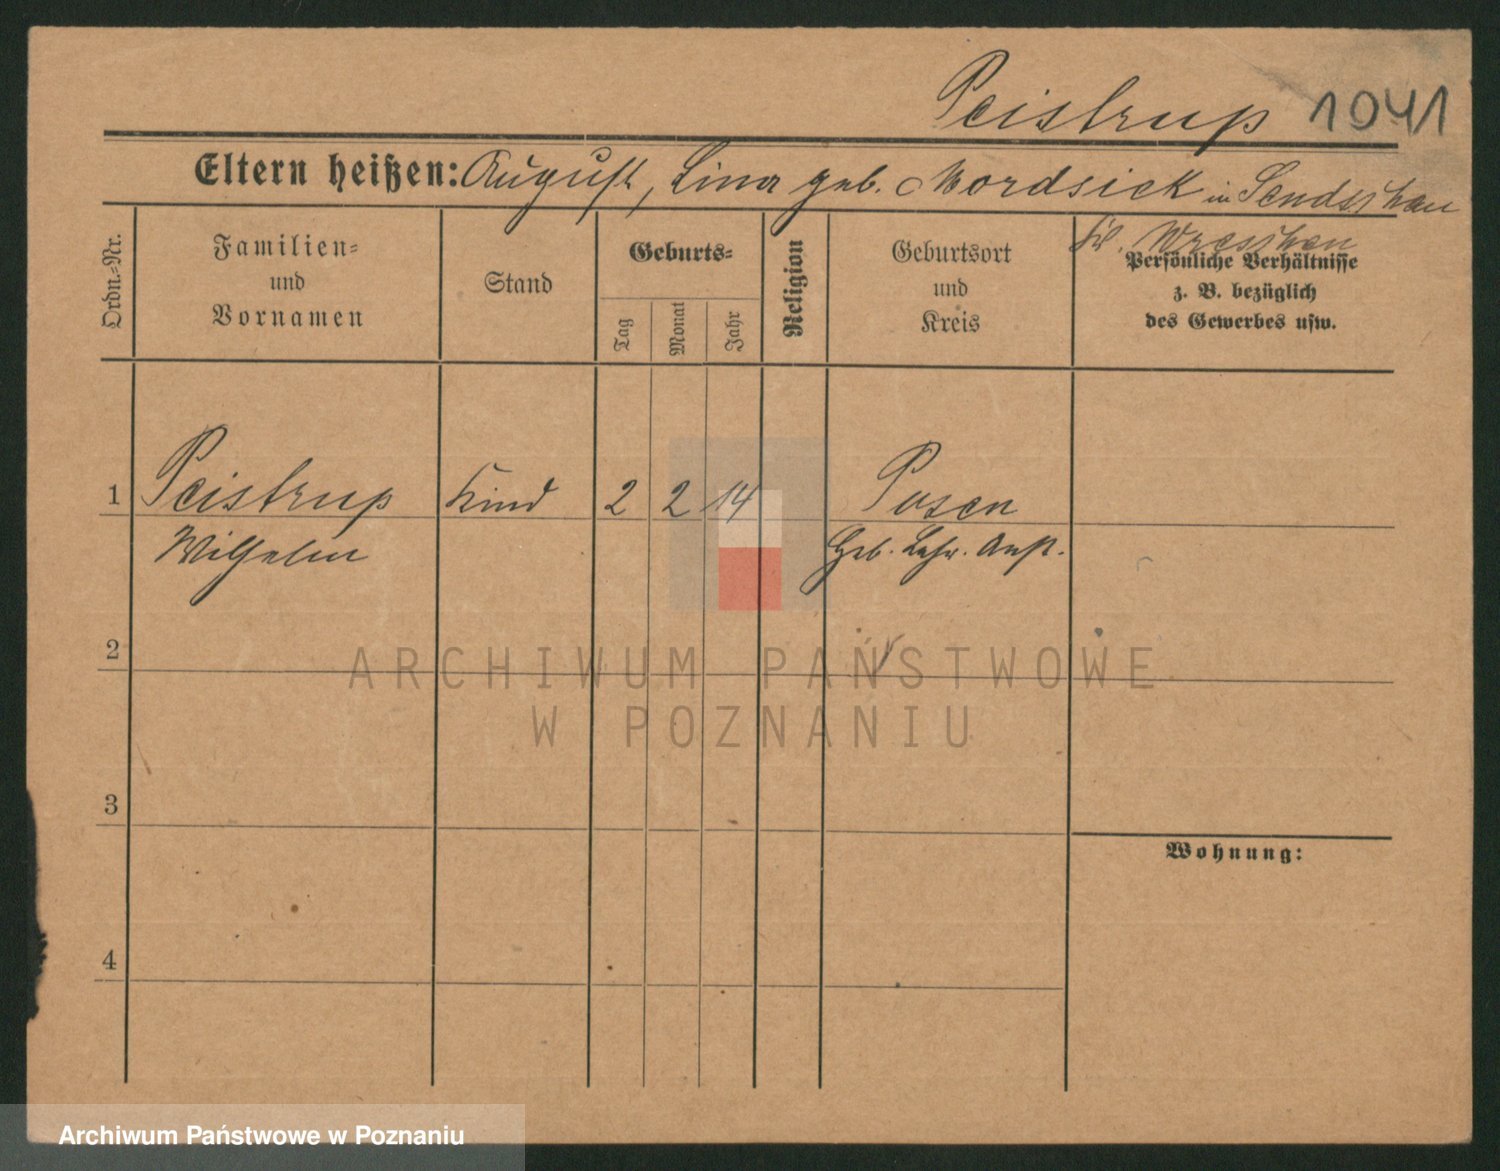 Peistrup 1041
Eltern heißen: August, Lina geb. Nordsiek in Sendschau
Kr. Wreschen
Ordn.=Nr.
Familien=
und
Vornamen
Stand
Geburts=
Tag
Monat
Jahr
Religion
Geburtsort
und
Kreis
Persönliche Verhältnisse
z. B. bezüglich
des Gewerbes usw.
1 Peistrup Kind 2 2 14 Posen
Wilhelm Geb. Lehr. Anst.
2
3
Wohnung:
4
ARCHIWUM PAŃSTWOWE
W POZNANIU
Archiwum Państwowe w Poznaniu